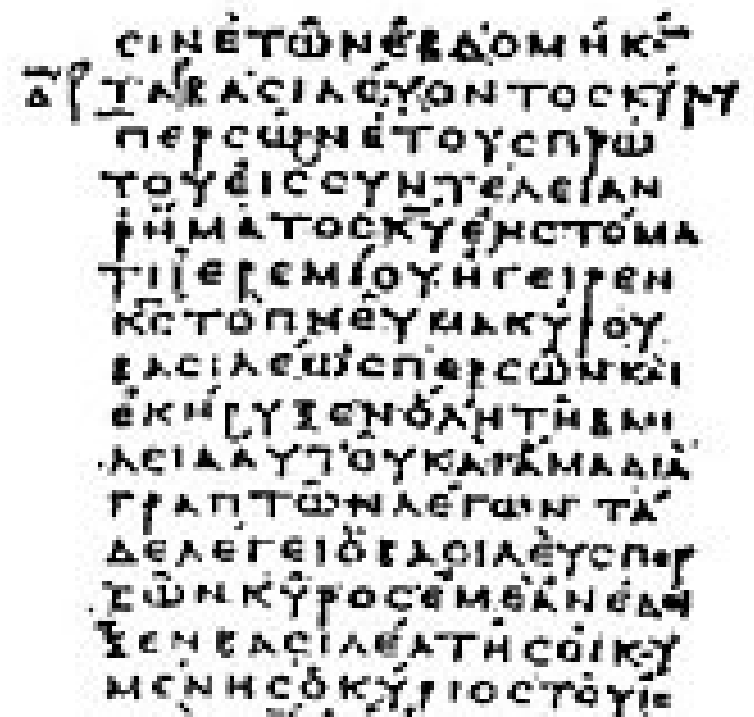 ϲιν ἐτῶν ἑβδομήκον
τα βαϲιλεύοντοϲ κύρου
περϲῶν ἔτουϲ πρώ
του εἰϲ ϲυντέλειαν
ῥήματοϲ κ̅υ̅ ἐν ϲτόμα
τι ἱερεμίου ἤγειρεν
κ̅ϲ̅ τὸ πνεῦμα κύρου
βαϲιλέωϲ περϲῶν καὶ
ἐκήρυξεν ὅλῃ τῇ βα
ϲιλείᾳ αὐτοῦ καὶ ἅμα διὰ
γραπτῶν λέγων τά
δε λέγει ὁ βαϲιλεὺϲ περ
ϲῶν κῦροϲ ἐμὲ ἀνέδει
ξεν βαϲιλέα τῆϲ οἰκου
μένηϲ ὁ κύριοϲ τοῦ ιϲ